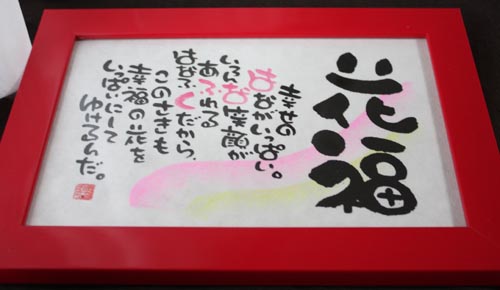 花福
幸せの
はながいっぱい。
笑顔が
あふれる
だから、
このさきも
幸福の花を
いっぱいにして
ゆけるんだ。